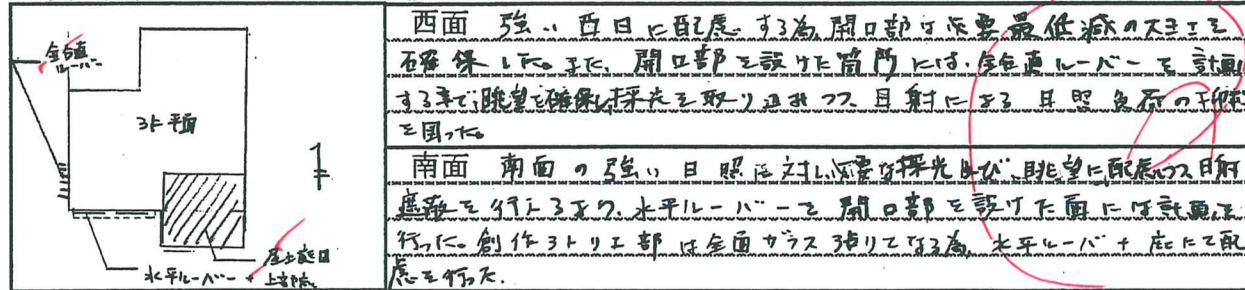 鉛直
ルーバー
3F 平面
水平ルーバー
屋上庭園
上部庇
西面 強い西日に配慮する為、開口部は必要最低減の大きさを
確保した。また、開口部を設けた箇所には、鉛直ルーバーを計画
する事で、眺望を確保し、採光を取り込みつつ、日射による日照負荷の抑制
を図った。
南面 南面の強い日照に対し、必要な採光及び、眺望に配慮しつつ日射
遮蔽を行えるよう、水平ルーバーを開口部を設けた面には計画を
行った。創作アトリエ部は全面ガラス張りてなる為、水平ルーバー+庇にて配
慮を行った。